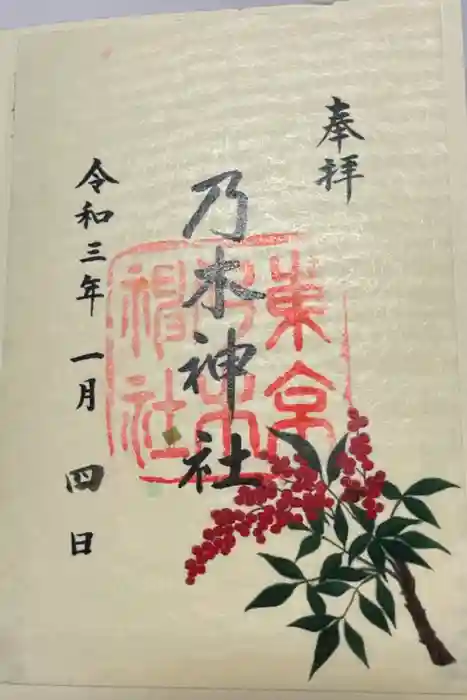 奉拝
乃木神社
東京
乃木
神社
令和三年 一月 四日